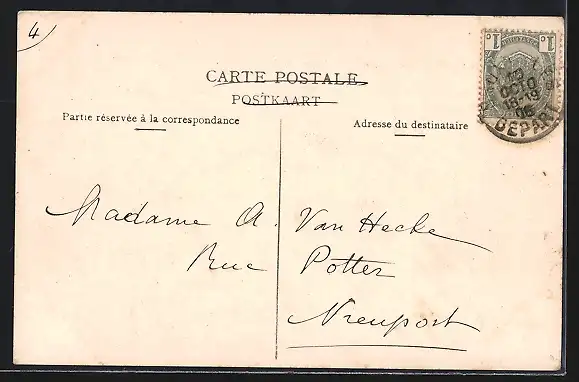 4
CARTE POSTALE
POSTKAART
Partie réservée à la correspondance
Adresse du destinataire
1c 1c
OCTO
18-19
DEPART
Madame A. Van Hecke
Rue Potter
Nieuport